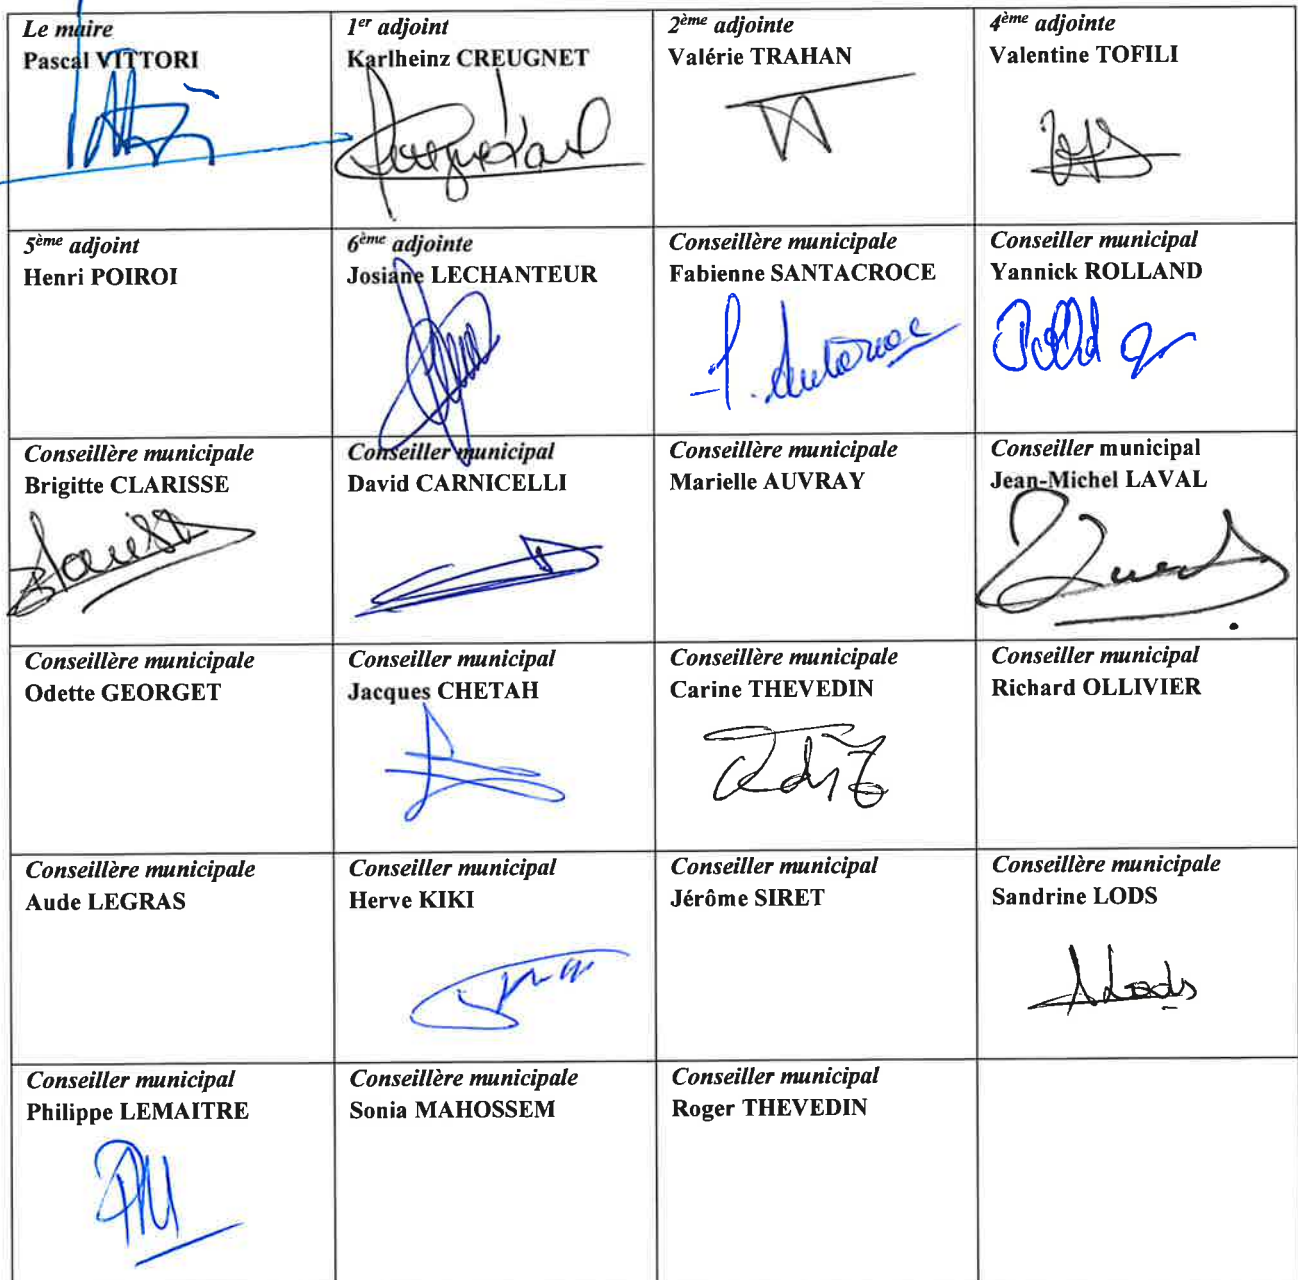 Le maire
Pascal VITTORI
1er adjoint
Karlheinz CREUGNET
2ème adjointe
Valérie TRAHAN
4ème adjointe
Valentine TOFILI
5ème adjoint
Henri POIROI
6ème adjointe
Josiane LECHANTEUR
Conseillère municipale
Fabienne SANTACROCE
Conseiller municipal
Yannick ROLLAND
Conseillère municipale
Brigitte CLARISSE
Conseiller municipal
David CARNICELLI
Conseillère municipale
Marielle AUVRAY
Conseiller municipal
Jean-Michel LAVAL
Conseillère municipale
Odette GEORGET
Conseiller municipal
Jacques CHETAH
Conseillère municipale
Carine THEVEDIN
Conseiller municipal
Richard OLLIVIER
Conseillère municipale
Aude LEGRAS
Conseiller municipal
Herve KIKI
Conseiller municipal
Jérôme SIRET
Conseillère municipale
Sandrine LODS
Conseiller municipal
Philippe LEMAITRE
Conseillère municipale
Sonia MAHOSSEM
Conseiller municipal
Roger THEVEDIN